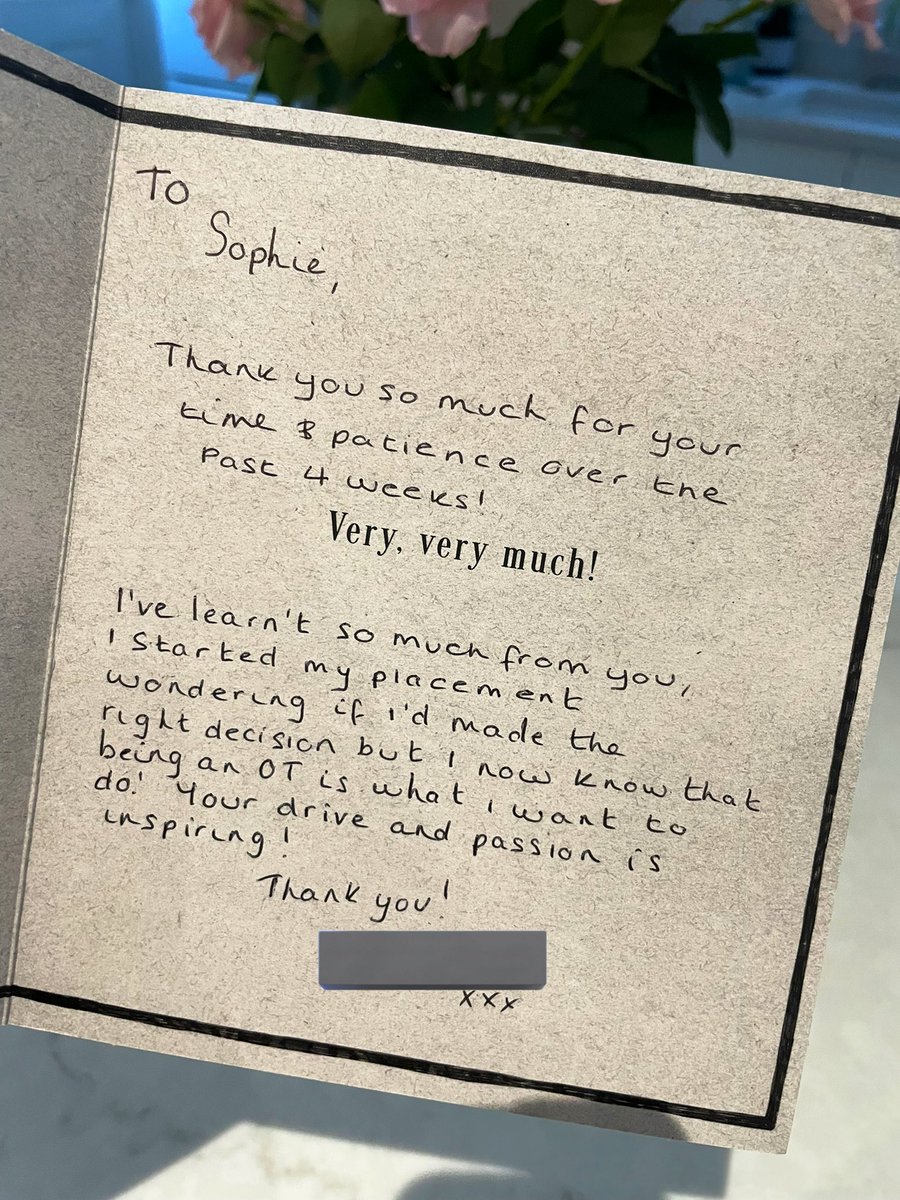 To
Sophie,
Thank you so much for your
time & patience over the
past 4 weeks!
Very, very much!
I've learn't so much from you,
I started my placement
wondering if I'd made the
right decision but I now know that
being an OT is what I want to
do! Your drive and passion is
inspiring!
Thank you!
xxx